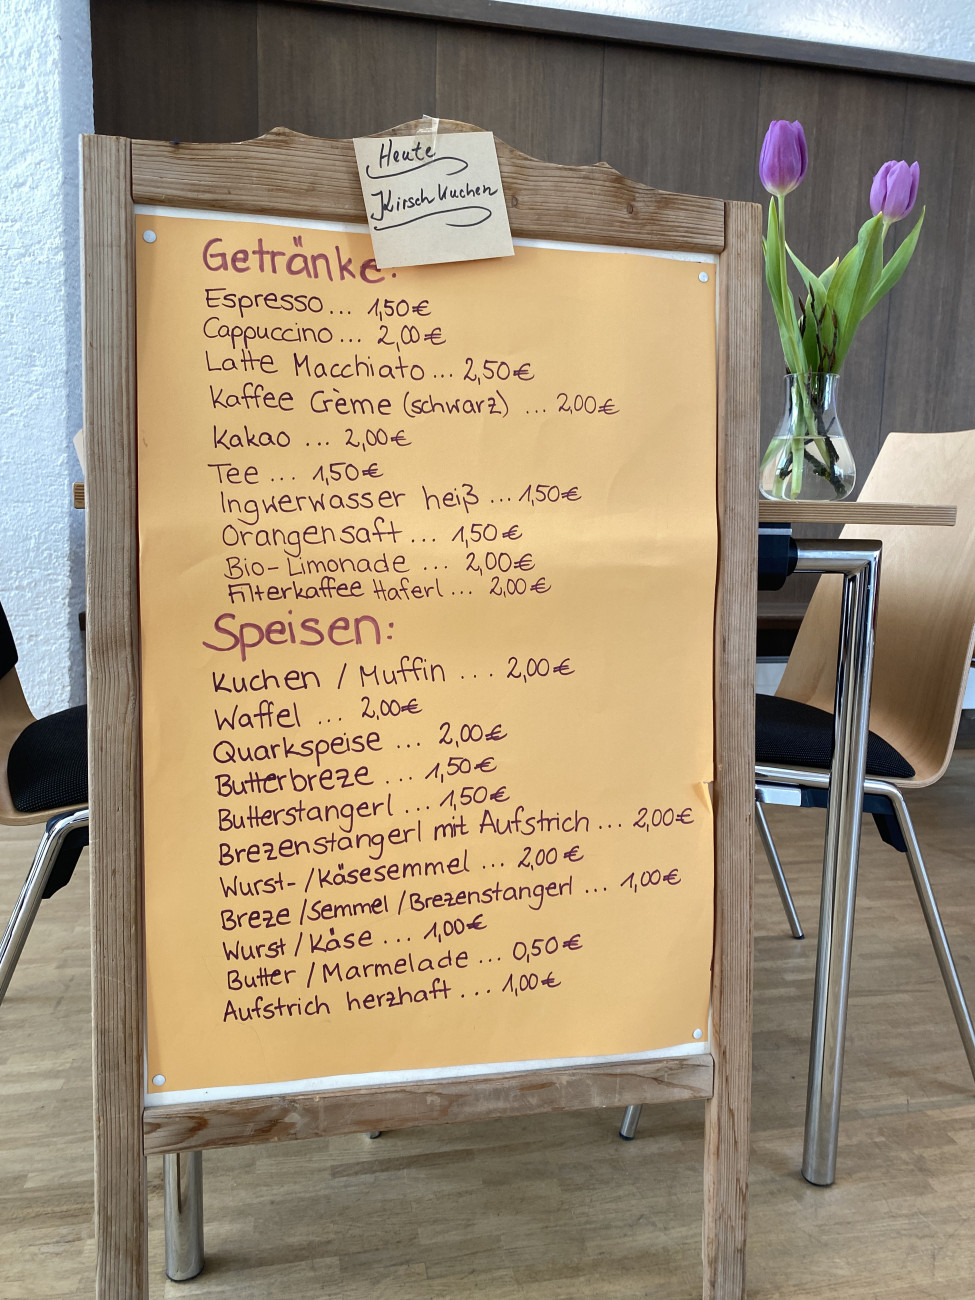 Heute
Kirschkuchen
Getränke:
Espresso... 1,50€
Cappuccino... 2,00€
Latte Macchiato... 2,50€
Kaffee Crème (schwarz) ... 2,00€
Kakao ... 2,00€
Tee ... 1,50€
Ingwerwasser heiß ... 1,50€
Orangensaft ... 1,50€
Bio-Limonade ... 2,00€
Filterkaffee Haferl ... 2,00€
Speisen:
Kuchen / Muffin ... 2,00€
Waffel ... 2,00€
Quarkspeise ... 2,00€
Butterbreze ... 1,50€
Butterstangerl ... 1,50€
Brezenstangerl mit Aufstrich ... 2,00€
Wurst-/Käsesemmel ... 2,00€
Breze/Semmel/Brezenstangerl ... 1,00€
Wurst/Käse ... 1,00€
Butter/Marmelade ... 0,50€
Aufstrich herzhaft ... 1,00€